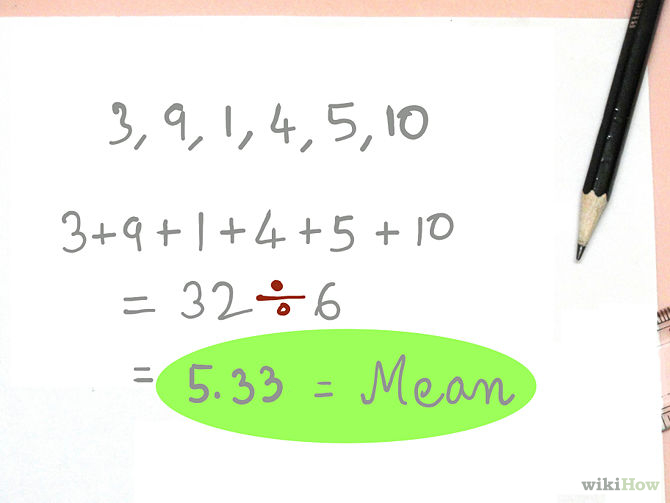 3, 9, 1, 4, 5, 10
3+9+1+4+5+10
= 32 ÷ 6
= 5.33 = Mean
wikiHow